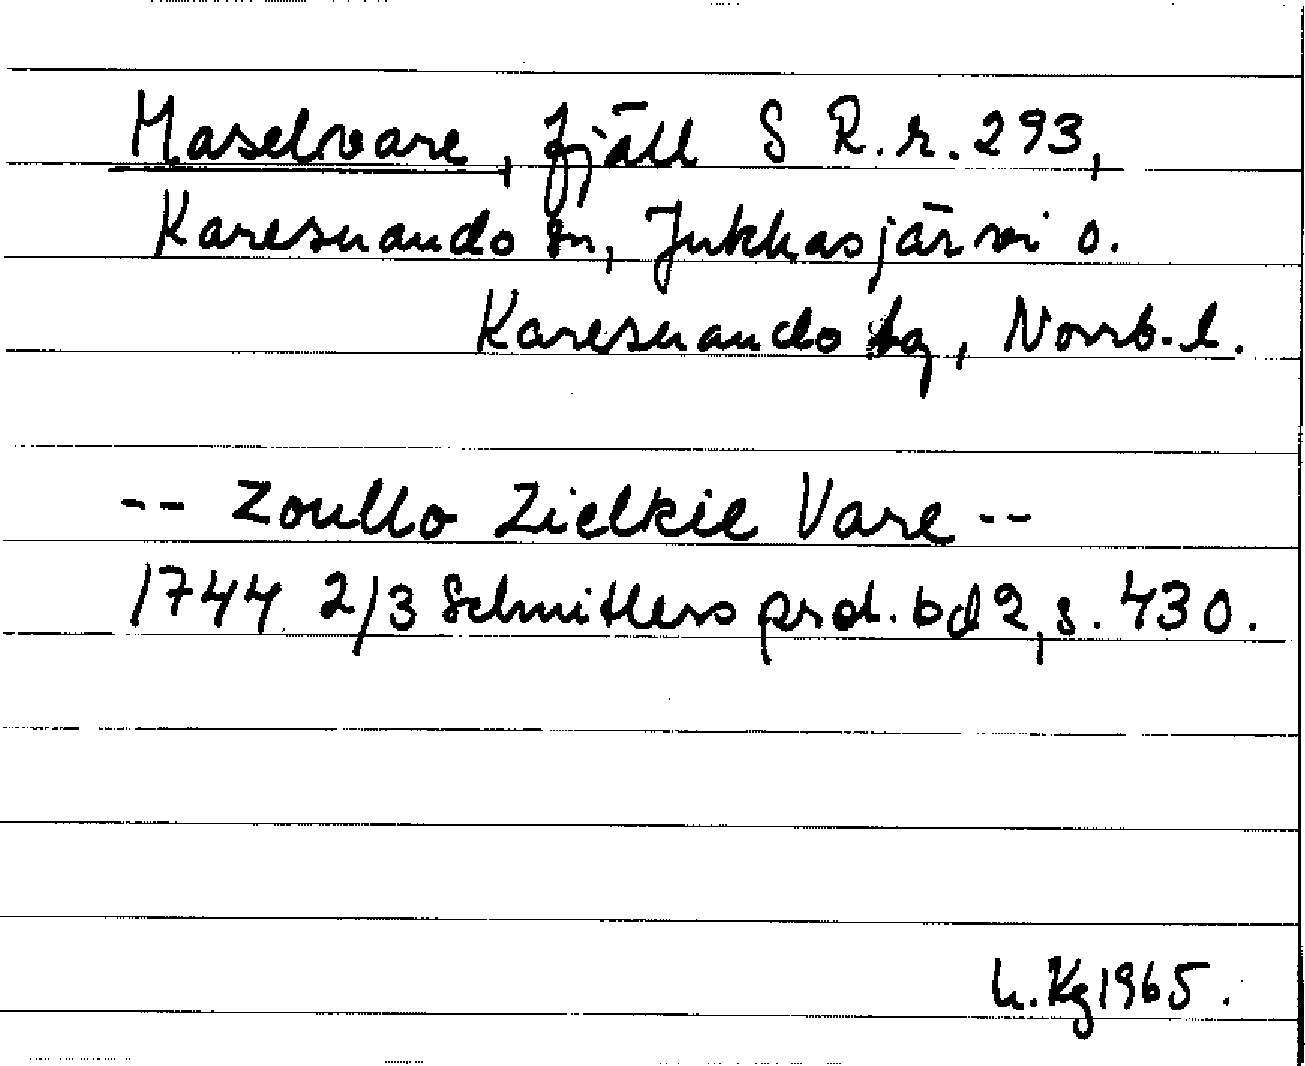 Maselvare, fjäll S R.r. 293,
Karesuando sn, Jukkasjärvi o.
Karesuando tg, Norrb. l.
-- Zoullo Zielkie Vare --
1744 2/3 Schnitlers prot. bd 2, s. 430.
h. Kg 1965.